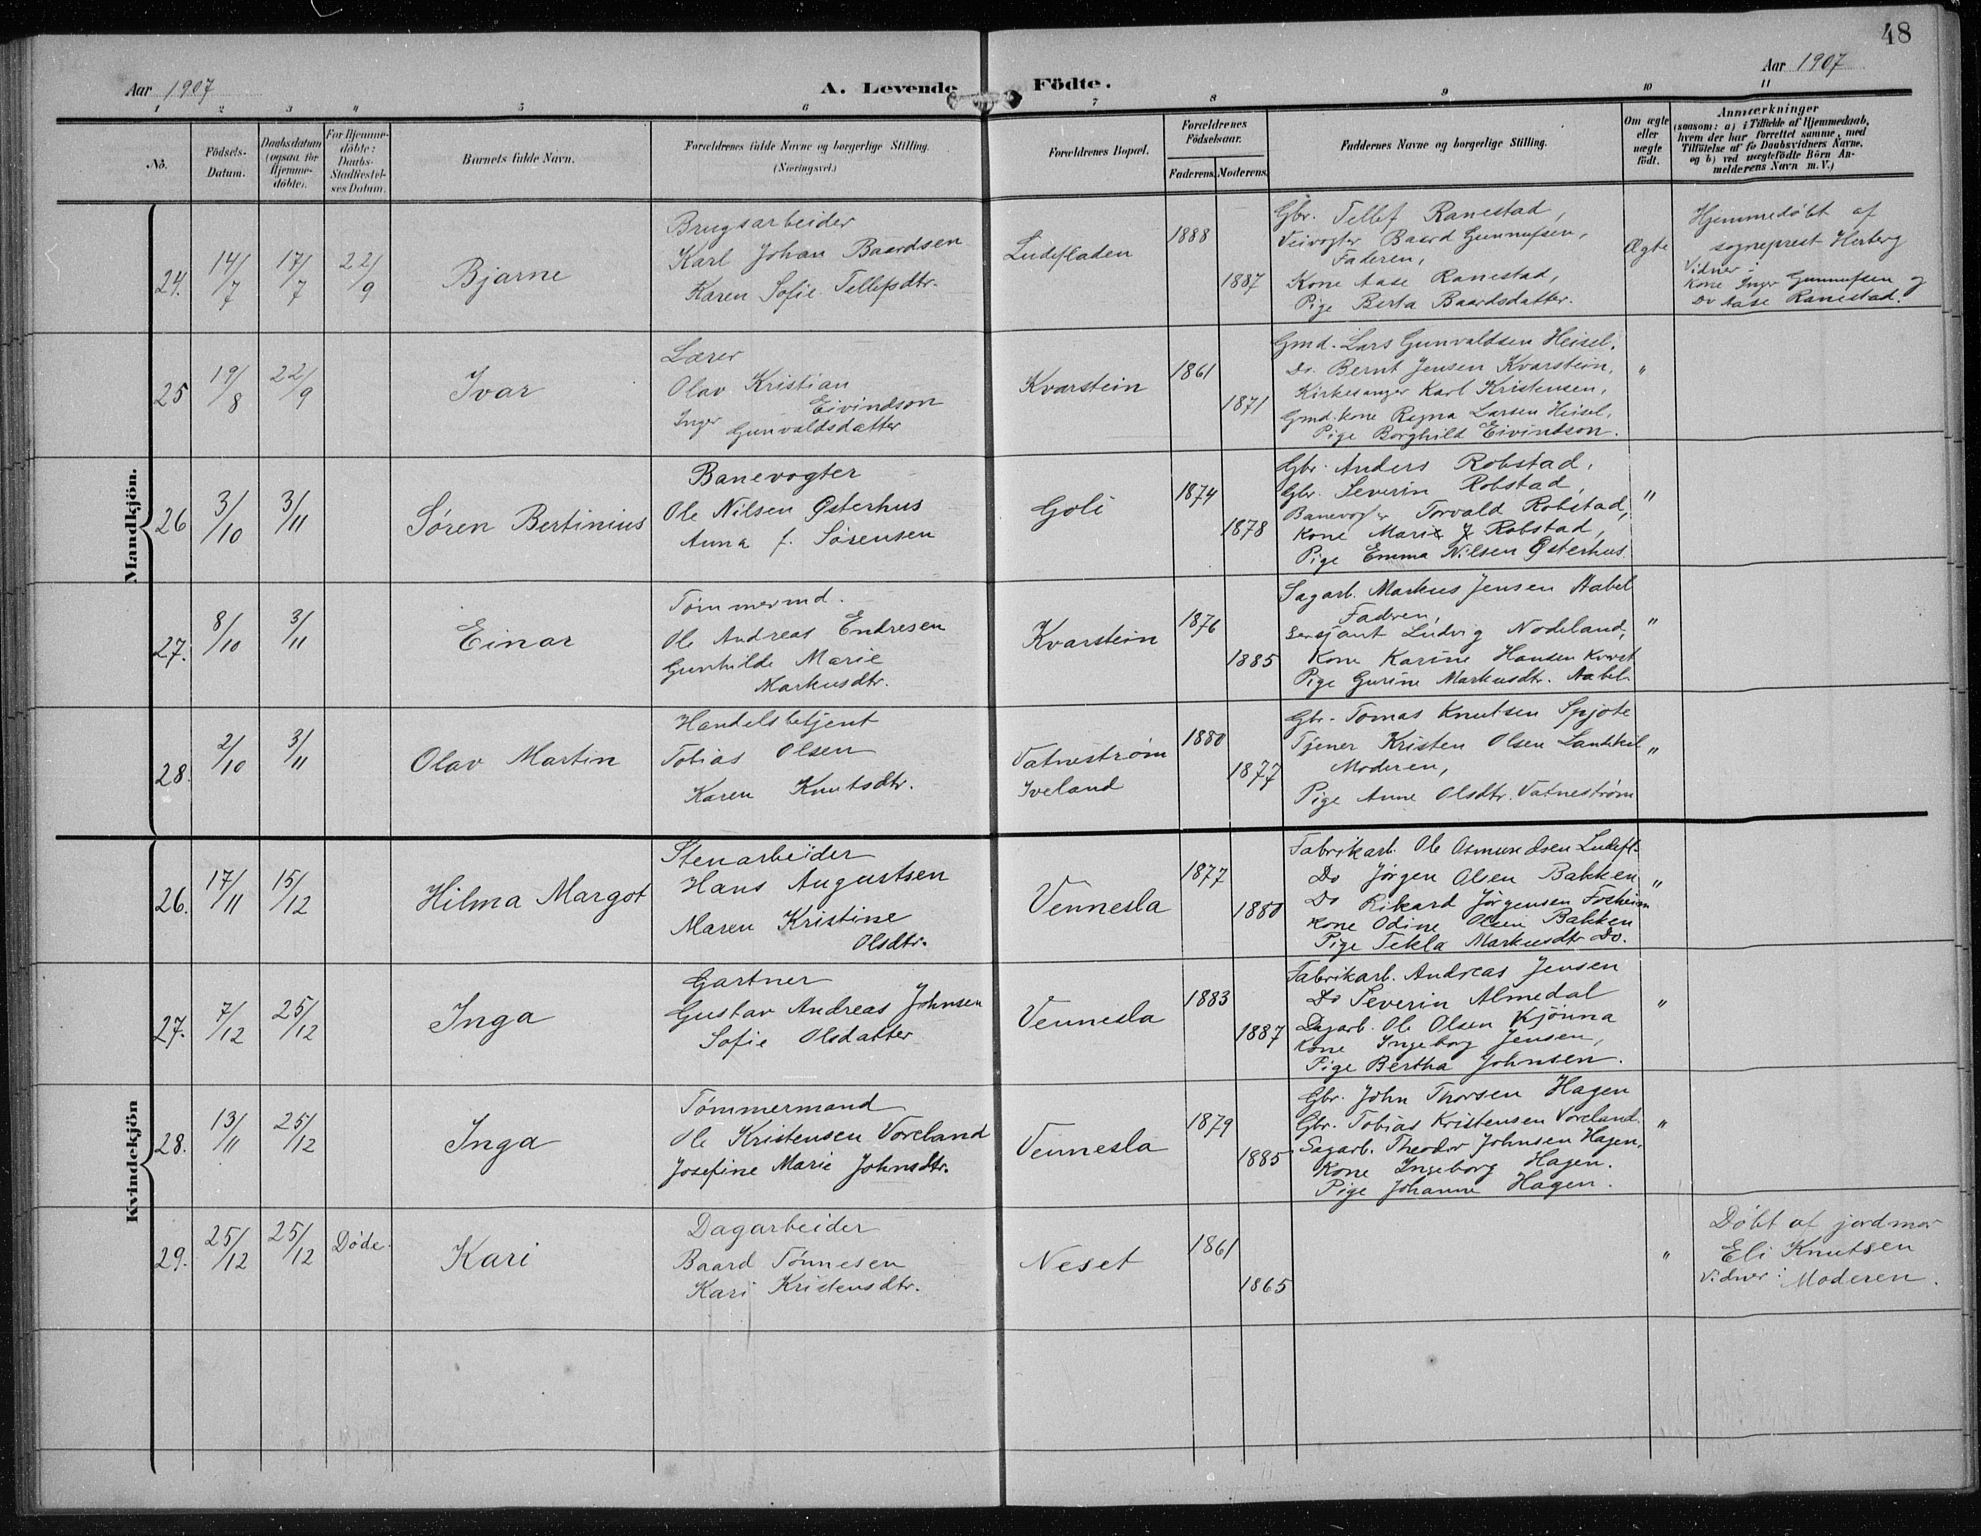 48
Aar 1907
A. Levende Födte.
Aar 1907
1 2 3 4 5 6 7 8 9 10 11
No.
Födsels-Datum.
Daabsdatum (ogsaa for Hjemme-döbte).
For Hjemme-döbte: Daabs-Stadfæstel-ses Datum.
Barnets fulde Navn.
Forældrenes fulde Navne og borgerlige Stilling.
(Næringsvei.)
Forældrenes Bopæl.
Forældrenes Födselsaar.
Faderens. Moderens.
Faddernes Navne og borgerlige Stilling.
Om ægte eller uægte födt.
Anmærkninger
(saasom: a) i Tilfælde af Hjemmedaab,
hvem der har forrettet samme, med
Tilföielse af to Daabsvidners Navne,
og b) ved uægtefödte Börn An-
melderens Navn m. V.)
Mandkjön.
24. 14/7 17/7 22/9
Bjarne
Brugsarbeider
Karl Johan Baardsen
Karen Sofie Tellefsdtr.
Ludefladen
1888
1887
Gbr. Tellef Ranestad,
Veivogter Baard Gunnufsen,
Faderen,
Kone Aase Ranestad,
Pige Berta Baardsdatter.
Ægte
Hjemmedöbt af
sogneprest Herberg
Vidner:
Kone Inger Gunnufsen og
Do Aase Ranestad.
25 19/8 22/9
Ivar
Lærer
Olav Kristian
Eivindson
Inger
Gunvaldsdatter
Kvarstein
1861
1871
Gmd. Lars Gunvaldsen Heisel.
Do. Bernt Jensen Kvarstein,
Kirkesanger Karl Kristensen,
Gmd.kone Regna Larsen Heisel,
Pige Borghild Eivindson.
"
26 3/10 3/11
Søren Bertinius
Banevogter
Ole Nilsen Østerhus
Anna f. Sørensen
Goli
1874
1878
Gbr. Anders Robstad,
Gbr. Severin Robstad,
Banevogter Torvald Robstad,
Kone Marie J Robstad,
Pige Emma Nilsen Østerhus
"
27. 8/10 3/11
Einar
Tømmermd.
Ole Andreas Endresen
Gunhilde Marie
Markusdtr.
Kvarstein
1876
1885
Sagarb. Markus Jensen Aabel
Faderen,
Sersjant Ludvig Nodeland,
Kone Karine Hansen Kvarst
Pige Gurine Markusdtr. Aabel
"
28. 2/10 3/11
Olav Martin
Handelsbetjent
Tobias Olsen
Karen Knutsdtr.
Vatnestrøm
Iveland
1880
1877
Gbr. Tomas Knutsen Spjote
Tjener Kristen Olsen
Moderen,
Pige Anne Olsdtr. Vatnestrøm
"
Kvindekjön
26. 17/11 15/12
Hilma Margot
Stenarbeider
Hans Augustsen
Maren Kristine
Olsdtr.
Vennesla
1877
1880
Fabrikarb. Ole Osmundsen Ludefl.
Do Jørgen Olsen Bakken
Do Rikard Jørgensen Foskeim
Kone Odine Olsen Bakken
Pige Tekla Markusdtr Do.
"
27. 7/12 25/12
Inga
Gartner
Gustav Andreas Johnsen
Sofie Olsdatter
Vennesla
1883
1887
Fabrikarb. Andreas Jensen
Do Severin Almedal
Dagarb. Ole Olsen Kjönna
Kone Ingeborg Jensen,
Pige Bertha Johnsen.
"
28. 13/11 25/12
Inga
Tømmermand
Ole Kristensen Voreland
Josefine Marie Johnsdtr.
Vennesla
1879
1885
Gbr. John Thorsen Hagen
Gbr. Tobias Kristensen Voreland.
Sagarb. Theodor Johnsen Hagen,
Kone Ingeborg Hagen.
Pige Johanne Hagen.
"
29. 25/12 25/12 Døde
Kari
Dagarbeider
Baard Tønnesen
Kari Kristensdtr.
Neset
1861
1865
"
Döbt af jordmor
Eli Knutsen
Vidner: Moderen.